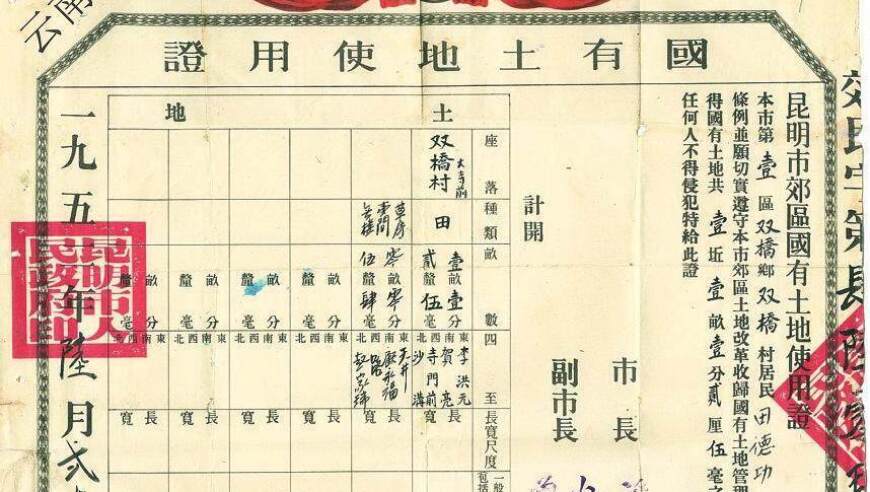 云南
國有土地使用證
郊民字第長陸
昆明市郊區國有土地使用證
本市第壹區双橋鄉双橋村居民田德功
條例並願切實遵守本市郊區土地改革收歸國有土地管理
得國有土地共壹坵壹畝壹分貳厘伍毫
任何人不得侵犯特給此證
計開
市長
副市長
土地
座落
種類
畝數
四至
長寬尺度
双橋村大寺前
田
壹畝壹分
貳釐伍毫
東南西北
李洪元
賀亮
寺門前
沙溝
長
寬
草房
壹間
無樓
零畝零分
伍釐肆毫
東南西北
天井
長
寬
畝分
釐毫
東南西北
長
寬
畝分
釐毫
東南西北
長
寬
畝分
釐毫
東南西北
長
寬
畝分
釐毫
東南西北
長
寬
一般
包括
一九五年陸月貳
昆明市人民政府印